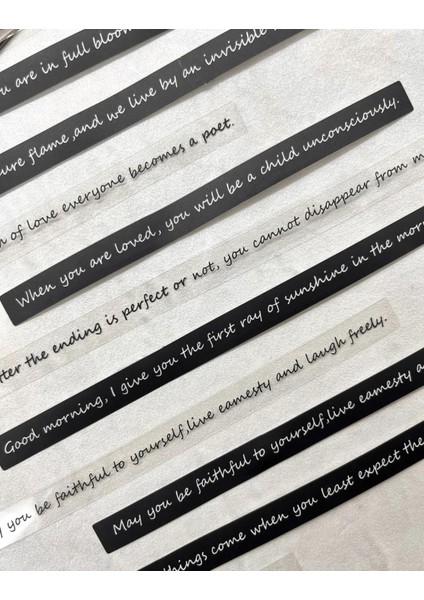 are in full bloom
flame, and we live by an invisible
of love everyone becomes a poet.
When you are loved, you will be a child unconsciously.
the ending is perfect or not, you cannot disappear from
Good morning, I give you the first ray of sunshine in the
you be faithful to yourself,live eamesty and laugh freely.
May you be faithful to yourself,live eamesty
things come when you least expect